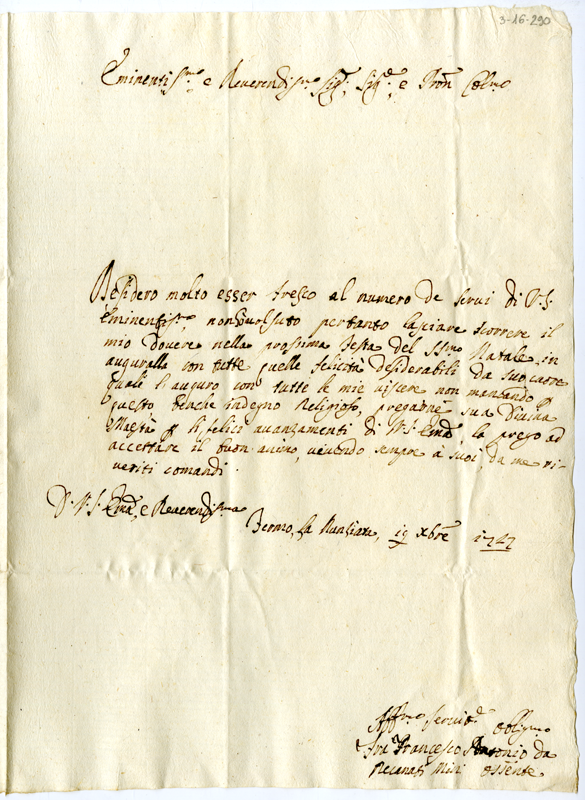 3-16-290
Eminentissmo e Reverendissmo Sigr, Sigr, e Pron Colmo
Desidero molto esser fresco al numero de servi di V. S.
Eminentissa, non ho volsuto pertanto lasciare scorrere il
mio dovere nella prossima festa del Ssmo Natale, in
auguralla con tutte quelle felicità desiderabili da suo cuore
quale l'auguro con tutte le mie viscere non mancando p
questo benche indegno Religioso, pregarne sua Divina
Maestà p li felici avanzamenti di V. S. Ema, la prego ad
accettare il buon animo, vivendo sempre à suoi da me ri-
veriti comandi.
D. V. S. Ema, e Reverendissma
Fermo, la Nunziata, 19 Xbre 1747
Affmo Servid obligmo
Fra Francesco Antonio da
Recanati Mini osserte